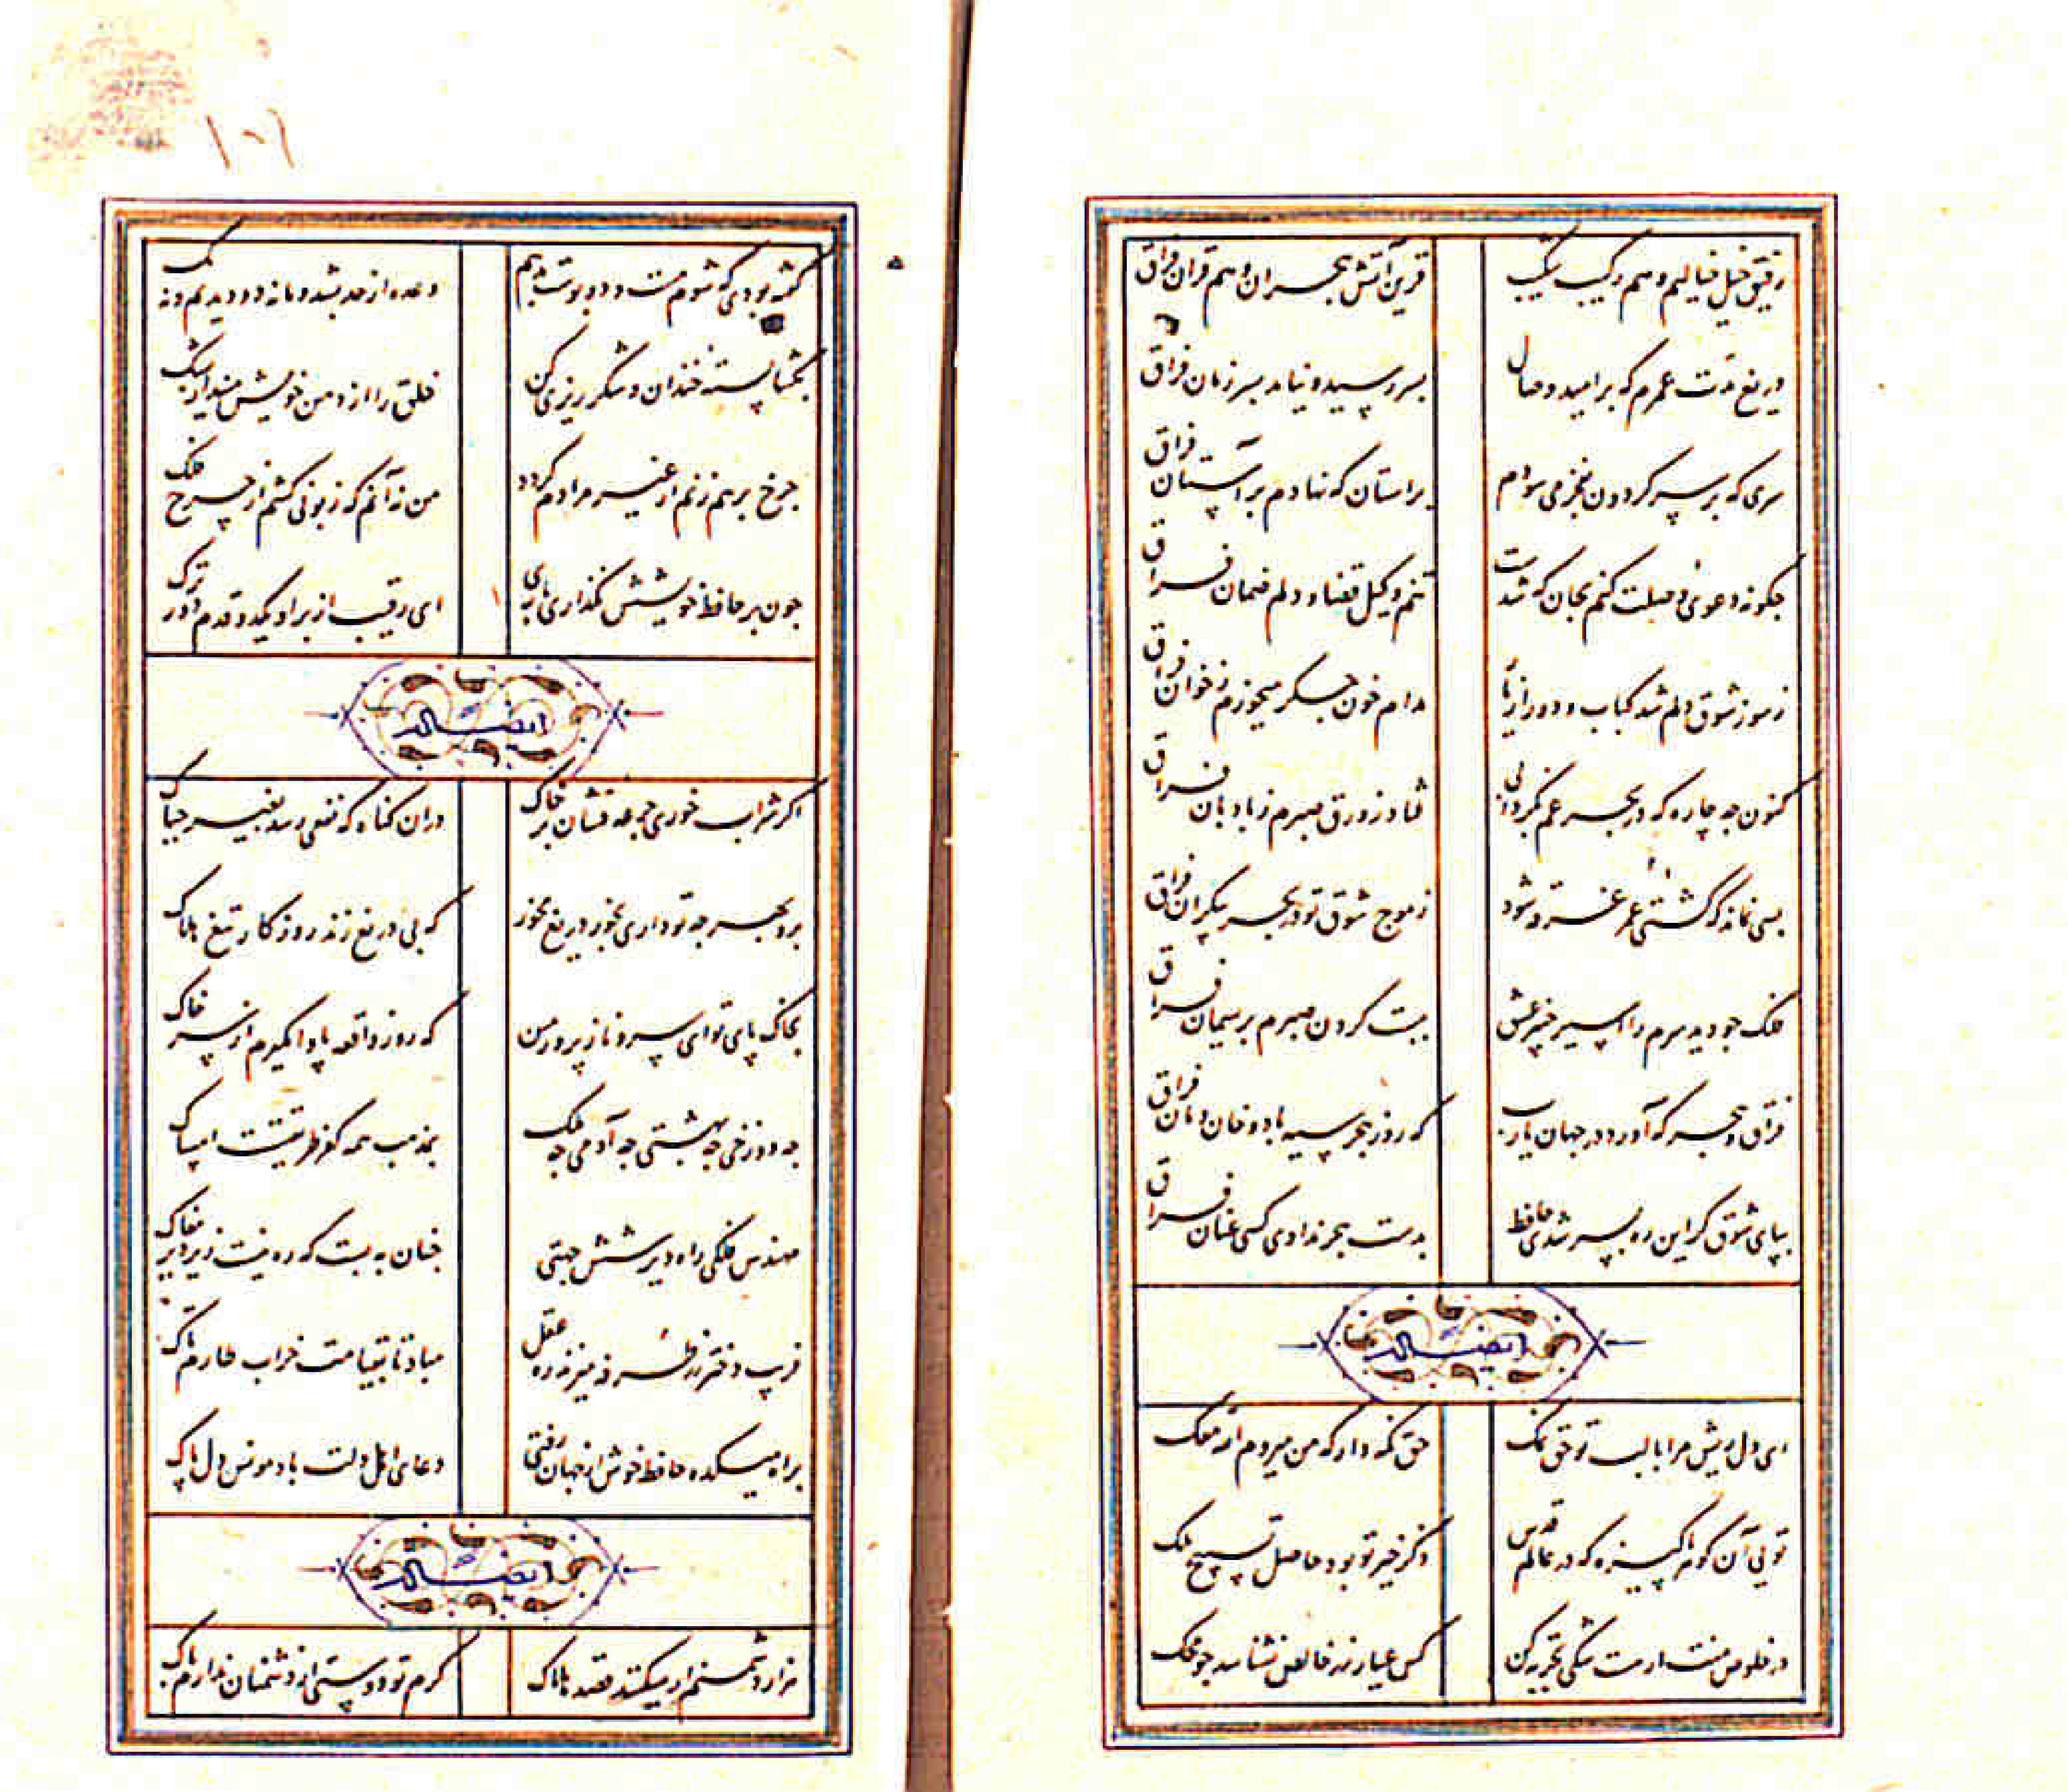 رفیق خیل خیالیم و هم رکیب شکیب
قرین آتش هجران و هم قران فراق
دریغ مدت عمرم که بر امید وصال
بسر رسید و نیامد بسر زمان فراق
سری که بر سر کردون بفخر می سودم
براستان که نهادم بر آستان فراق
چکونه دعوی وصلت کنم بجان که شدست
تنم وکیل قضا و دلم ضمان فراق
ز سوز شوق دلم شد کباب و دور از یار
مدام خون جسکر میخورم ز خوان فراق
کنون چه چاره که در بحر غم بکردابی
فتاد زورق صبرم ز بادبان فراق
بسی نماند که کشتی عمر غرقه شود
ز موج شوق تو در بحر بیکران فراق
فلک چو دید سرم را اسیر چنبر عشق
ببست کردن صبرم بریسمان فراق
فراق و هجر که آورد در جهان یارب
که روز هجر سیه باد و خان و مان فراق
بپای شوق کر این ره بسر شدی حافظ
بدست هجر ندادی کسی عنان فراق
ایضاله
ای دل ریش مرا با لب تو حق نمک
حق نکه دار که من میروم الله معک
تویی آن کوهر پاکیزه که در عالم قدس
ذکر خیر تو بود حاصل تسبیح ملک
در خلوص منت ار هست شکی تجربه کن
کس عیار زر خالص نشناسد چو محک
۱۰۶
کفته بودی که شوم مست و دو بوست بدهم
وعده از حد بشد و ما نه دو دیدیم و نه یک
بکشا پسته خندان و شکر ریزی کن
خلق را از دهن خویش مینداز بشک
چرخ برهم زنم ار غیر مرادم کردد
من نه آنم که زبونی کشم از چرخ فلک
چون بر حافظ خویشش نکذاری باری
ای رقیب از بر او یکدو قدم دورترک
ایضاله
اکر شراب خوری جرعه فشان بر خاک
در ان کناه که نفعی رسد بغیر چه باک
برو بهر چه تو داری بخور دریغ مخور
که بی دریغ زند روزکار تیغ هلاک
بخاک پای تو ای سرو ناز پرور من
که روز واقعه پا وا مکیرم از سر خاک
چه دوزخی چه بهشتی چه آدمی چه ملک
بمذهب همه کفر طریقتست امساک
مهندس فلکی راه دیر شش جهتی
چنان به بست که ره نیست زیر دیر مغاک
فریب دختر رز طرفه میزند ره عقل
مباد تا بقیامت خراب طارم تاک
براه میسکده حافظ خوش از جهان رفتی
دعای اهل دلت باد مونس دل پاک
ایضاله
هزار دشمنم ار میکنند قصد هلاک
کرم تو دوستی از دشمنان ندارم باک